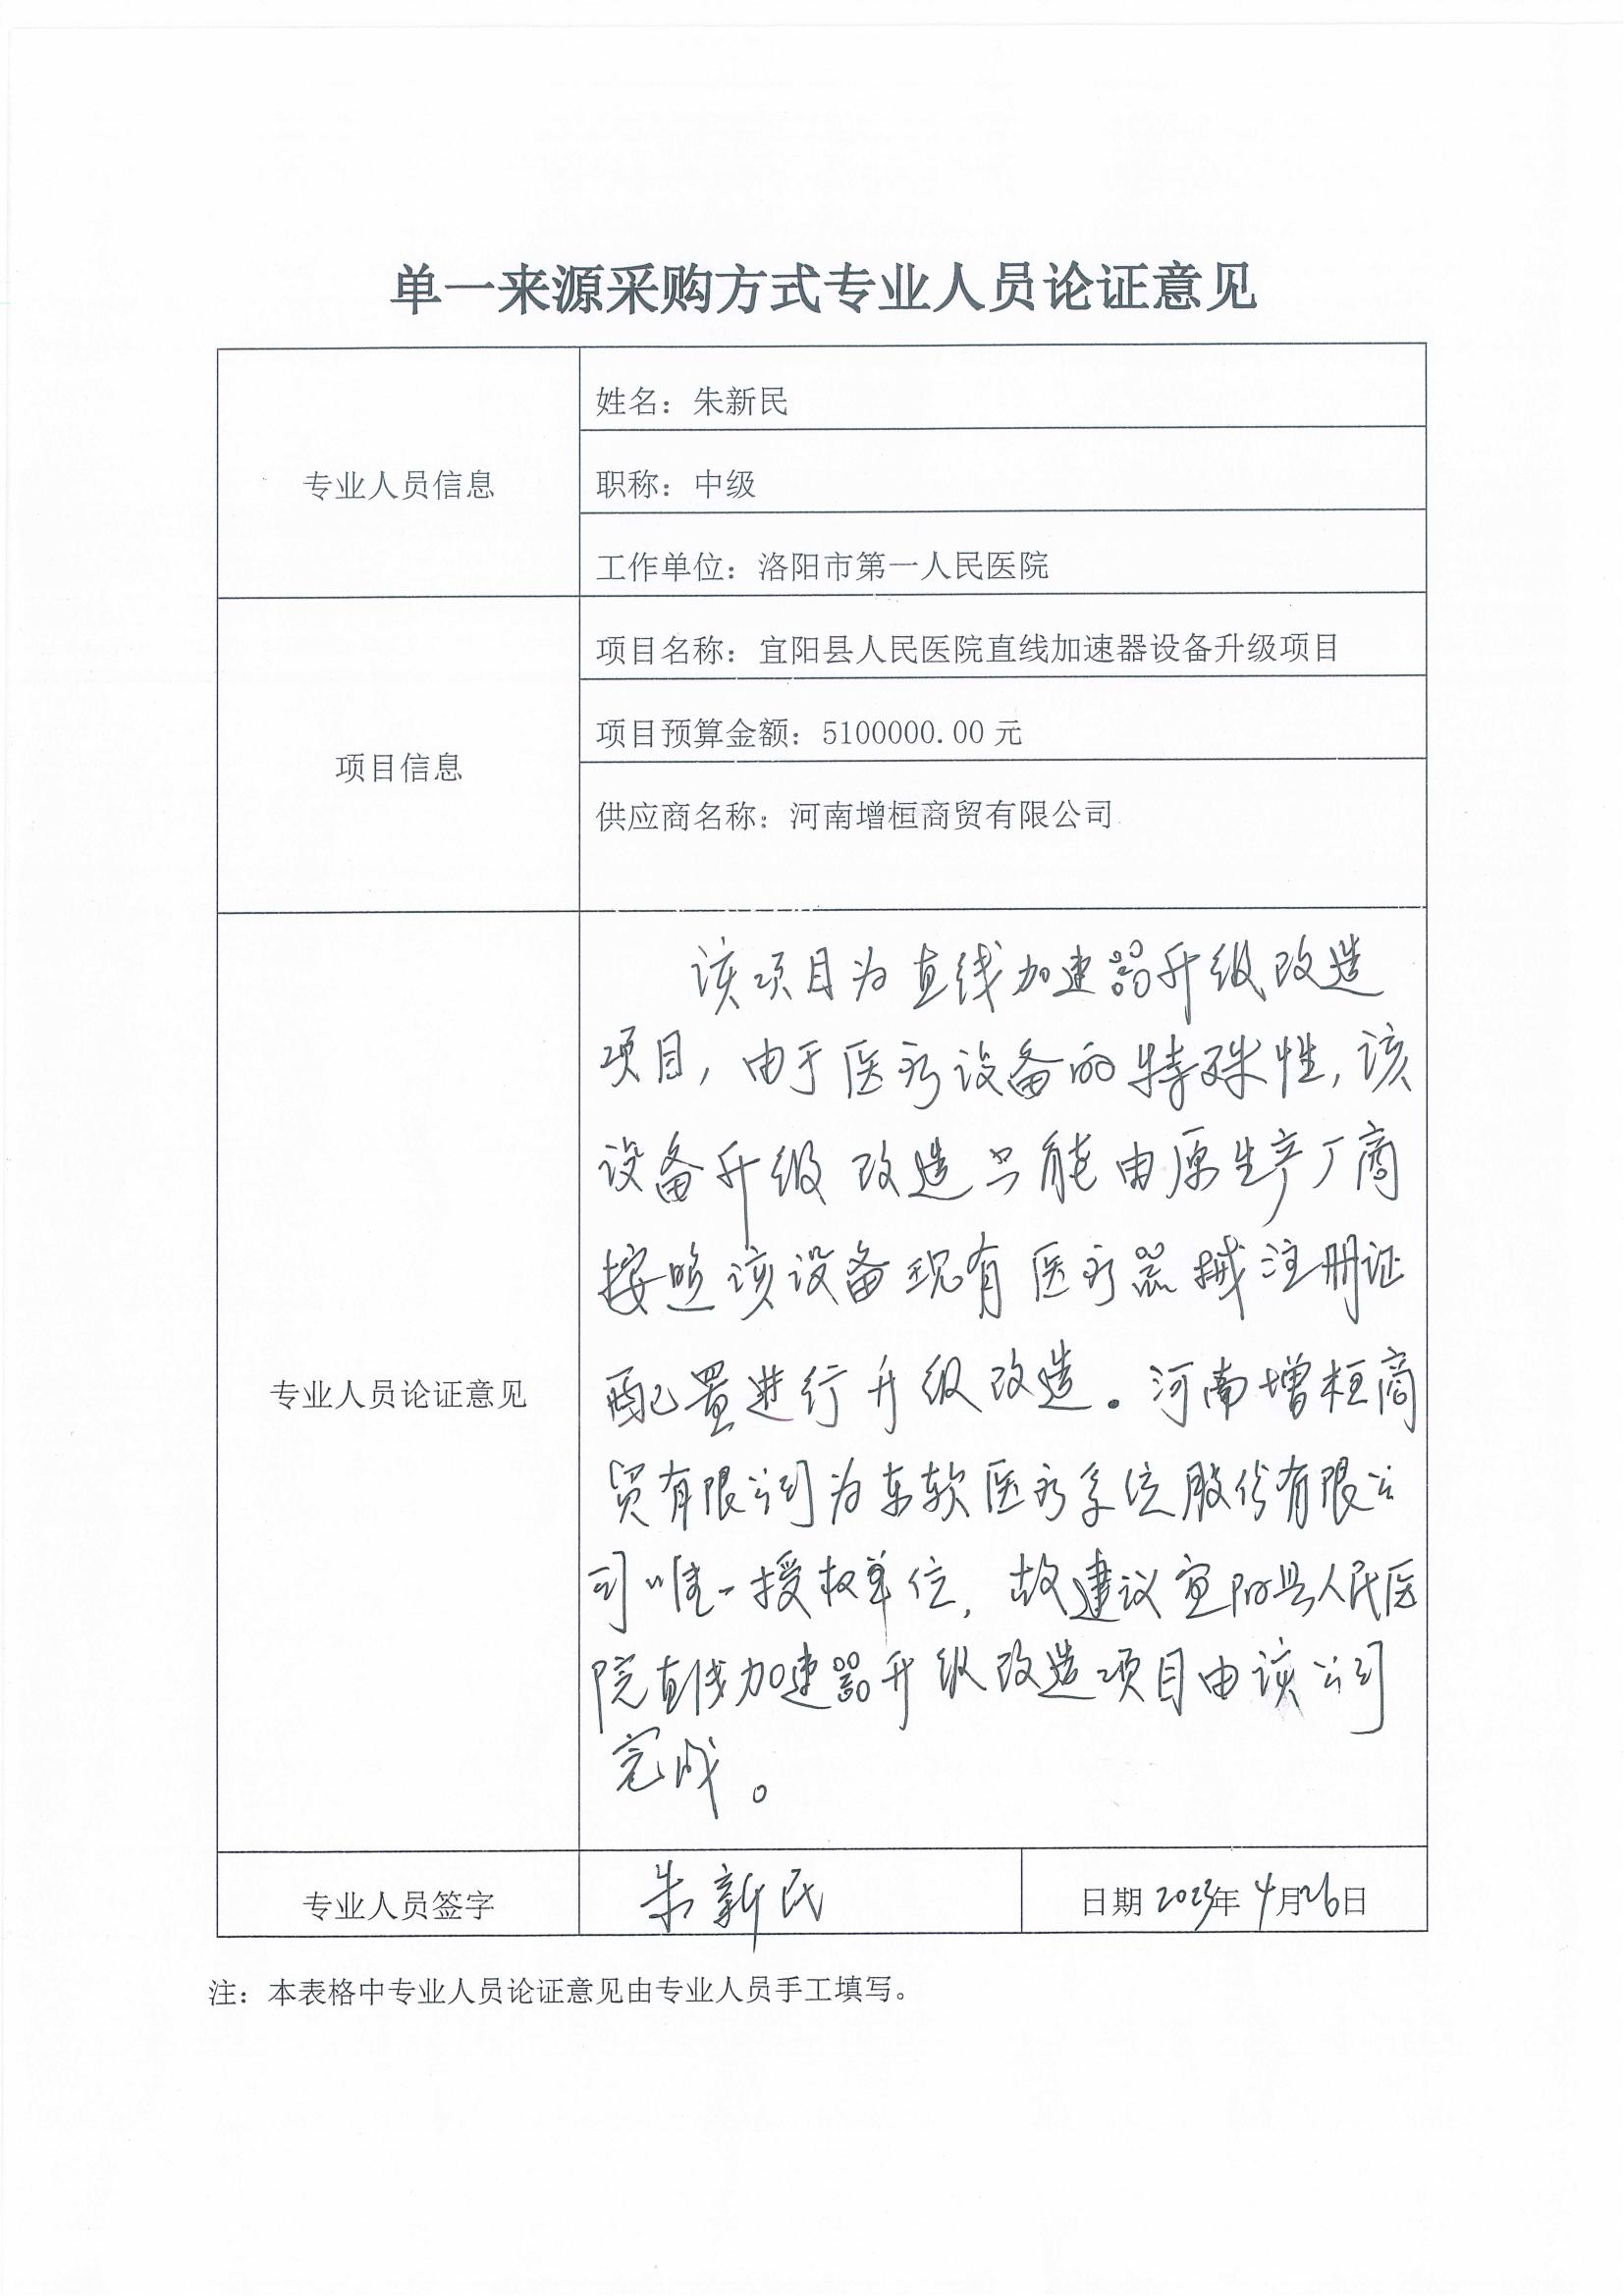 单一来源采购方式专业人员论证意见
专业人员信息
姓名：朱新民
职称：中级
工作单位：洛阳市第一人民医院
项目信息
项目名称：宜阳县人民医院直线加速器设备升级项目
项目预算金额：5100000.00 元
供应商名称：河南增桓商贸有限公司
专业人员论证意见
该项目为直线加速器升级改造
项目，由于医疗设备的特殊性，该
设备升级改造只能由原生产厂商
按照该设备现有医疗器械注册证
配置进行升级改造。河南增桓商
贸有限公司为东软医疗系统股份有限公
司唯一授权单位，故建议宜阳县人民医
院直线加速器升级改造项目由该公司
完成。
专业人员签字
朱新民
日期 2023年 4月26日
注：本表格中专业人员论证意见由专业人员手工填写。